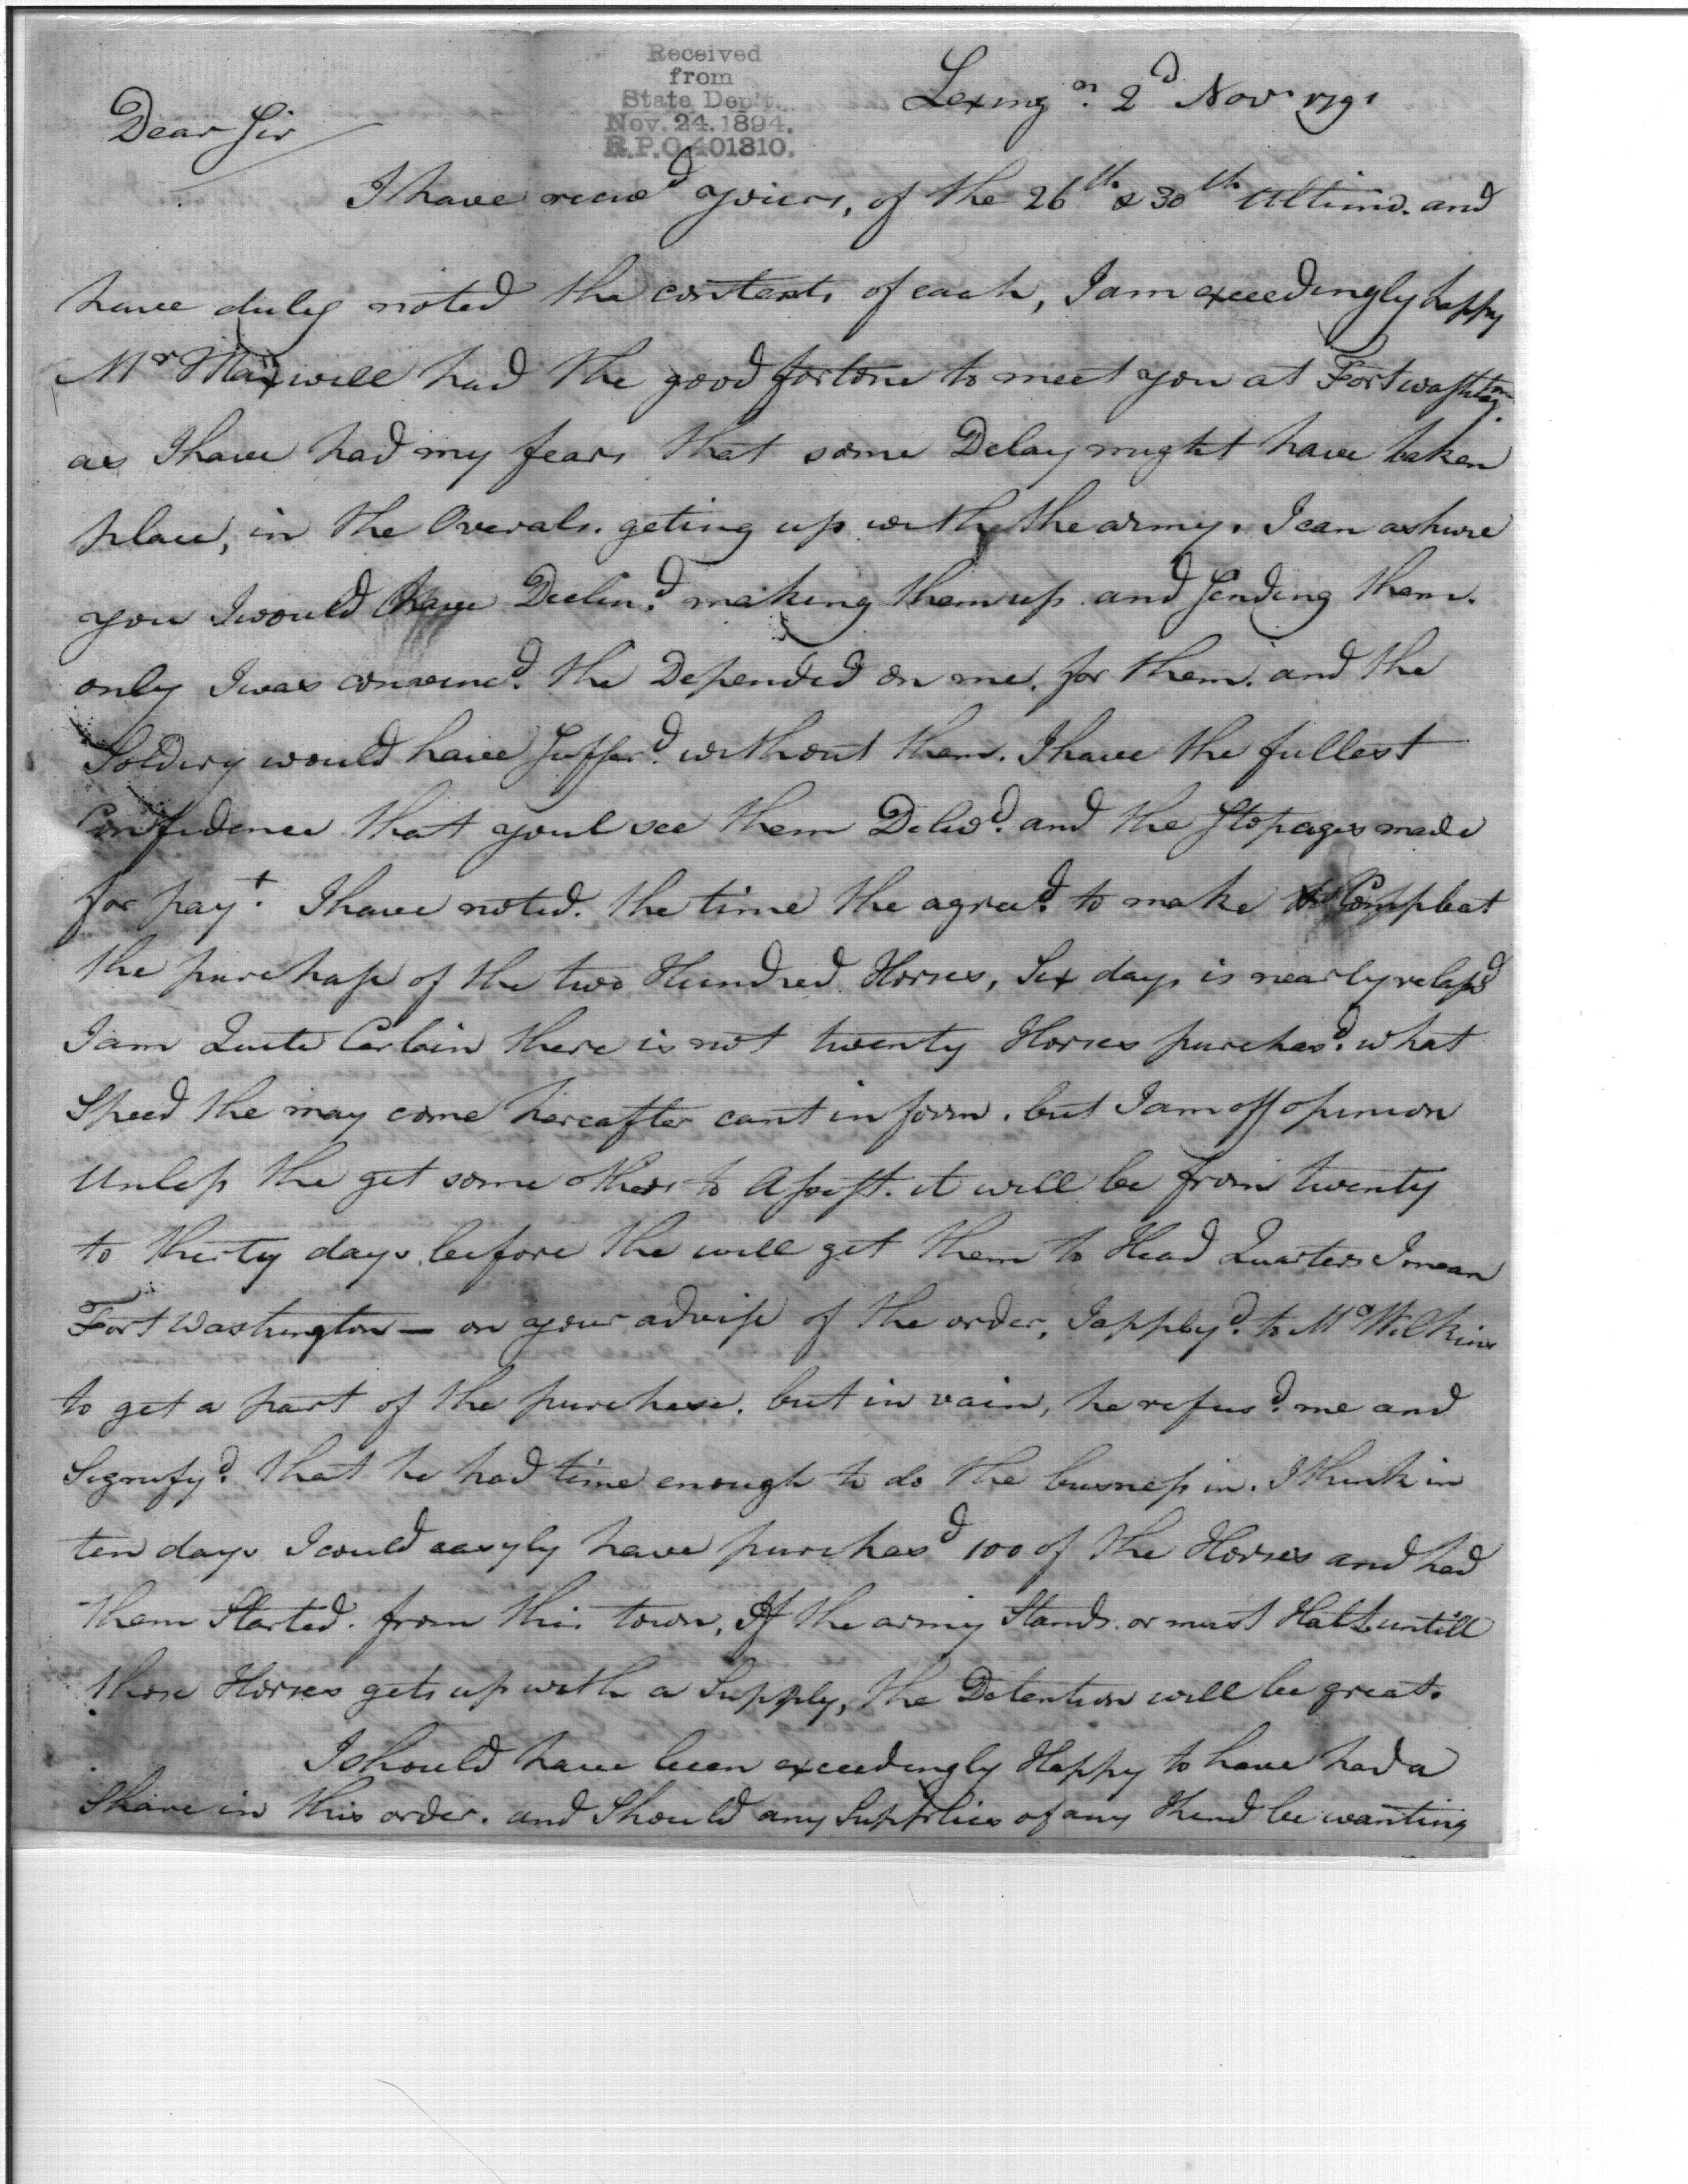 Received
from
State Dep't.
Nov. 24. 1894.
R.P.O. 401810.
Lexingon. 2d Novr 1791
Dear Sir
I have recevd yours, of the 26th & 30th Ultimo. and
have duly noted the contents of each, I am exceedingly happy
Mr Maxwell had the good fortone to meet you at Fort washtagn
as I have had my fears that some Delay might have taken
place, in the Overals. geting up with the army. I can ashure
you I would have Declin'd making them up and Sending them.
only I was convinc'd the Depended on me. for them. and the
Soldiery would have Suffer'd without them. I have the fullest
Confidence that youl see them Delivd. and the Stopages made
for payt. I have noted. the time the agree'd to make Compleat
the purchase of the two Hundred Horses, Six days is nearly relaps'd
I am Quite Certain there is not twenty Horses purchas'd. what
Speed the may come hereafter cant inform. but I am off opinion
Unless the get some others to Assist. it will be from twenty
to thirty days before the will get them to Head Quarters I mean
Fort Washington — on your advise of the order, I apply'd to Mr Wilkins
to get a part of the purchase. but in vain, he refus'd me and
Signify'd. that he had time enough to do the busness in. I think in
ten days I could easyly have purchas'd 100 of the Horses and had
them Started. from this town, If the army Stands. or must Halt untill
those Horses gets up with a Supply, the Detention will be great.
I should have been exceedingly Happy to have had a
Share in this order. and Should any Supplies of any Kind be wanting